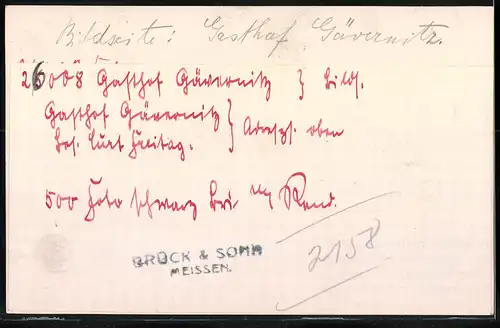 Bildseite: Gasthof Gävernitz.
26008 Gasthof Gävernitz } Bilds.
Gasthof Gävernitz } Adresss. oben
Bes. Curt Freitag.
500 Foto schwarz Bri m/ Rand.
BRÜCK & SOHN
MEISSEN.
2158